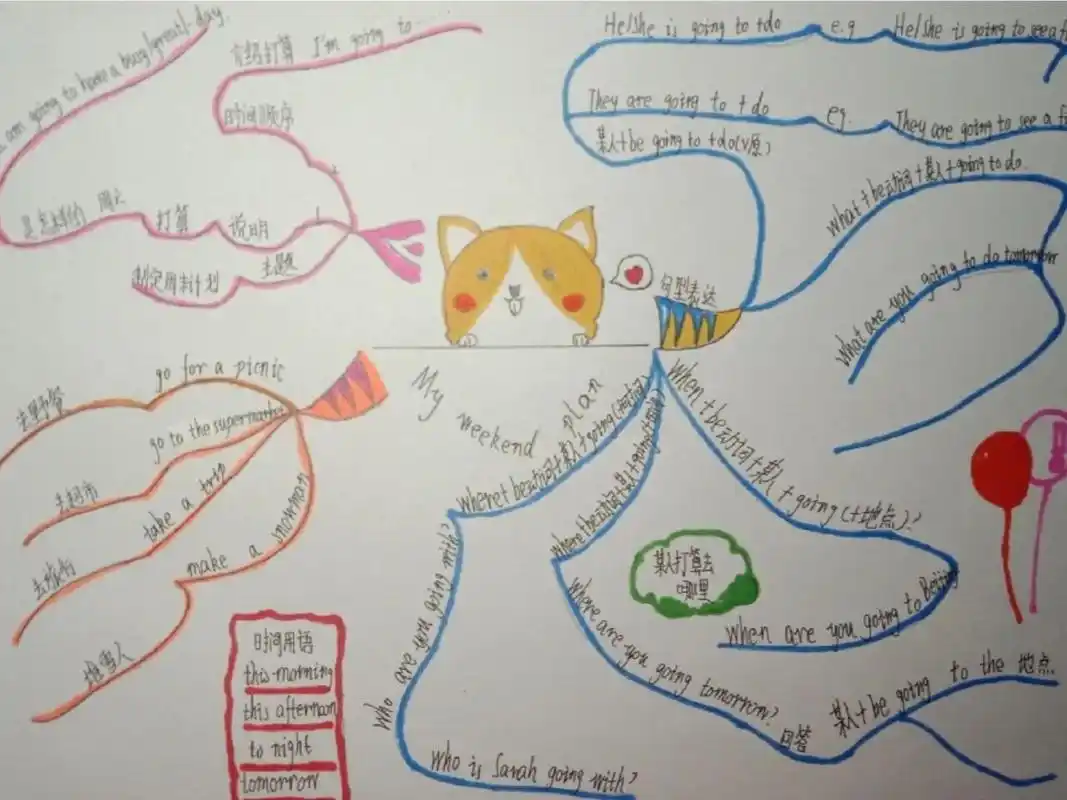 am going to have a busy/great day.
介绍打算 I'm going to
时间顺序
2
是怎样的 周六 打算 说明 1
制定周末计划 主题
My weekend plan
句型表达
He/she is going to +do e.g He/she is going to see a
They are going to + do eg. They are going to see a
某人+be going to +do(v原)
what + be动词+某人+going to do.
What are you going to do tomorrow
go for a picnic
去野餐
go to the supermarket
去超市
take a trip
去旅行
make a snowman
堆雪人
时间用语
this morning
this afternoon
to night
tomorrow
where+be动词+某人+going(+时间)
Who are you going with?
Who is Sarah going with?
where+be动词+某人+going(+时间)
Where are you going tomorrow?
回答 某人+be going to the 地点
When+be动词+某人+going(+地点)?
When are you going to Beijing
某人打算去
哪里